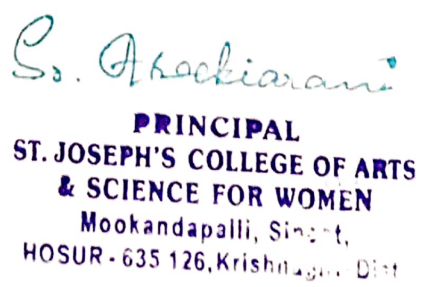 Sr. Arockiarani
PRINCIPAL
ST. JOSEPH'S COLLEGE OF ARTS
& SCIENCE FOR WOMEN
Mookandapalli,
HOSUR - 635 126, Dist